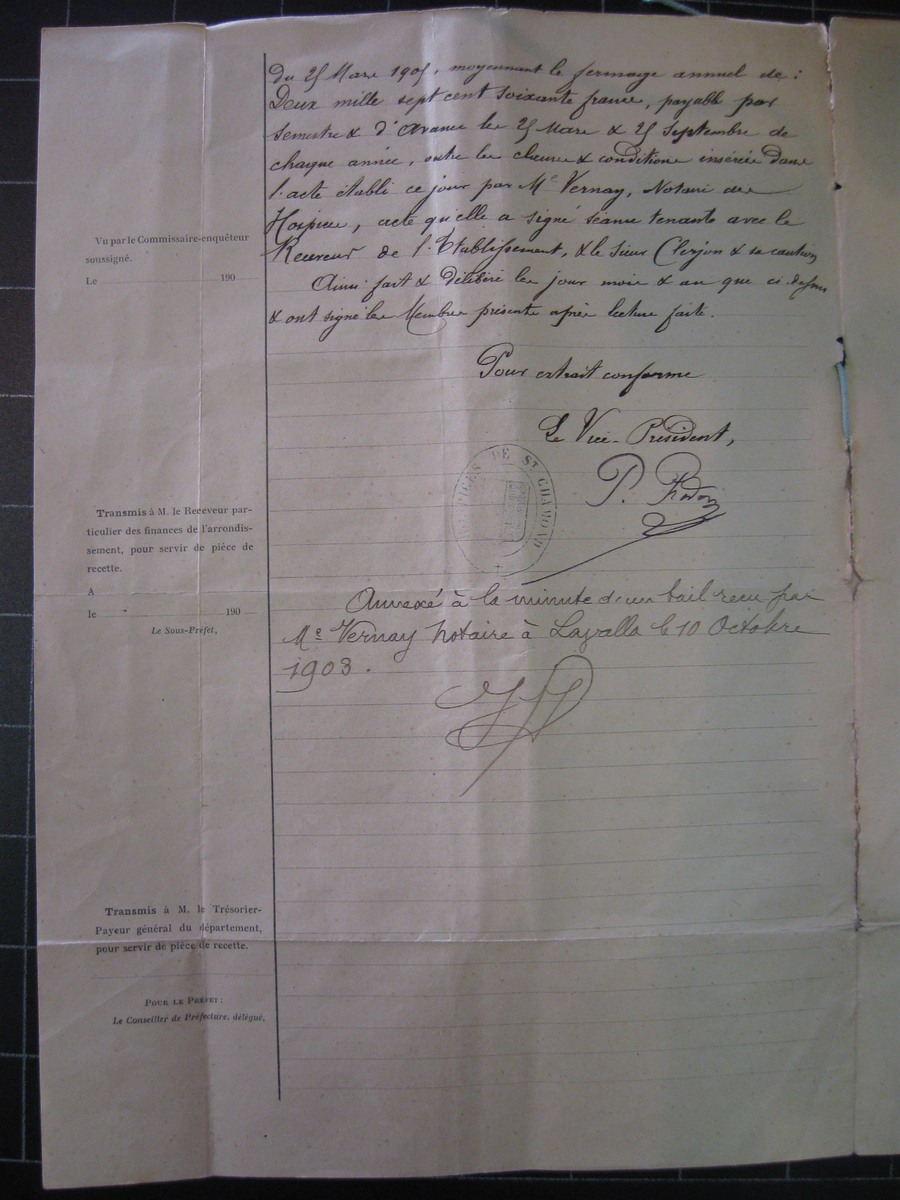 Du 25 Mars 1905, moyennant le fermage annuel de :
Deux mille sept cent soixante francs, payable par
semestre & d'avance les 25 Mars & 25 Septembre de
chaque année, outre les charges & conditions insérées dans
l'acte établi ce jour par Me Vernay, Notaire des
Hospices, acte qu'elle a signé séance tenante avec le
Receveur de l'Etablissement, & le sieur Clerjon & sa caution
Ainsi fait & délibéré les jour mois & an que ci-dessus
& ont signé les Membres présents après lecture faite.
Pour extrait conforme
Le Vice-Président,
P.
HOSPICES DE ST CHAMOND
Annexé à la minute d'un bail reçu par
Me Vernay notaire à Lavalla le 10 Octobre
1903.
Vu par le Commissaire-enquêteur
soussigné.
Le 190
Transmis à M. le Receveur par-
ticulier des finances de l'arrondis-
sement, pour servir de pièce de
recette.
A
le 190
Le Sous-Préfet,
Transmis à M. le Trésorier-
Payeur général du département,
pour servir de pièce de recette.
POUR LE PRÉFET :
Le Conseiller de Préfecture, délégué,